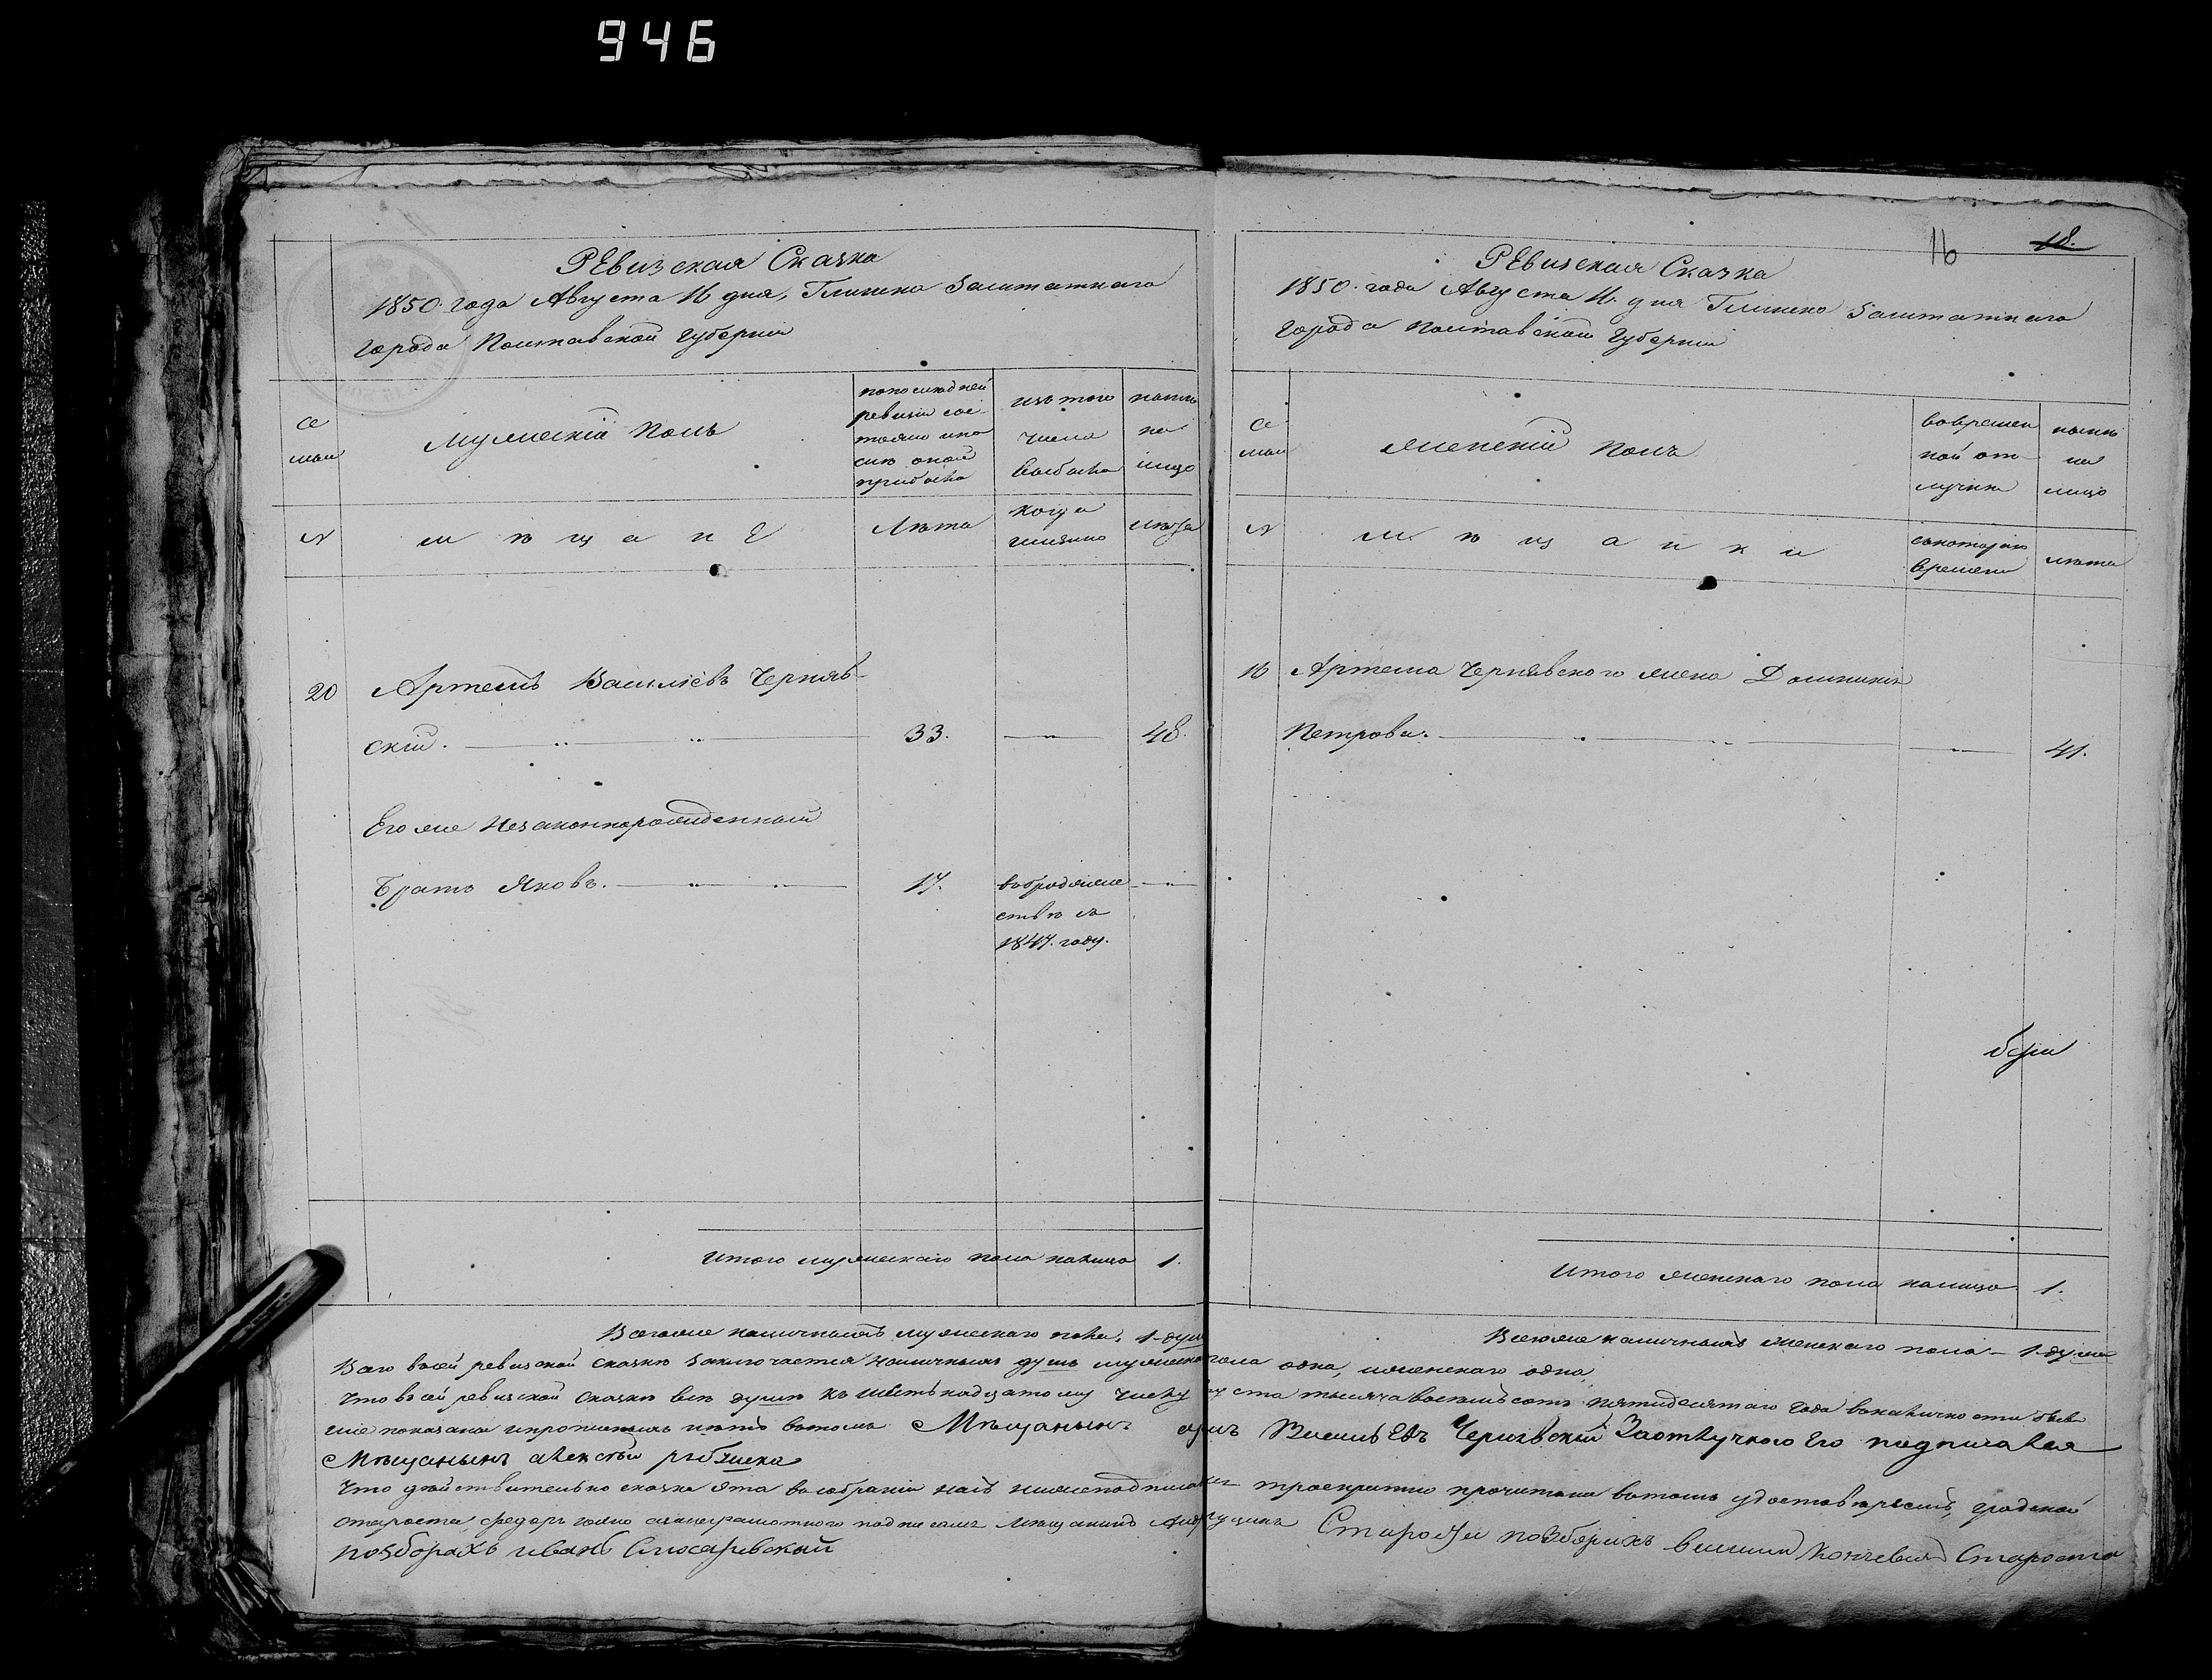 946
Ревизская Сказка
1850 года Августа 16 дня, Глинска Заштатнаго
города Полтавской губернии
Се
мьи
Мужеский полъ
по последней
ревизии сос
тояло и по
сле оной
прибыло
изъ того
числа
выбыло
ныне
на
лицо
№
м ѣ щ а н е
Лѣта
когда
именно
лѣта
20 Артемъ Васильевъ Черняв-
ский. 33. 48.
Его же незаконнорожденный
братъ Яковъ. 17. в бродяже
ствѣ съ
1847. году.
Итого мужескаго пола налицо 1.
16 18.
Ревизская Сказка
1850. года Августа 16. дня Глинска Заштатнаго
города Полтавской губернии
Се
мьи
Женский полъ
во времен
ной от-
лучкѣ
ныне
на
лицо
№
м ѣ щ а н к и
съ котораго
времени
лѣта
16 Артема Чернявского жена Домникия
Петрова. 41.
Итого женскаго пола налицо 1.
Всего же наличныхъ мужескаго пола. 1 душа
Всего же наличныхъ женскаго пола — 1 душа
Всего в сей ревизской сказкѣ заключается наличныхъ душъ мужеска пола одна, женскаго одна
Что в сей ревизской сказкѣ всѣ души къ шестьнадцатому числу ста тысяча восемьсотъ пятидесятаго года
показаны и прописныхъ нѣтъ в томъ Мѣщанинъ Василь Евъ Чернявский За отлучкого Его подписался
Мѣщанинъ Алексѣй
Что действительно сказка эта в собрании насъ нижеподписа троекратно прочитана в томъ удостовѣряемъ, градской
староста Федоръ а за неграмотного подписалъ Мѣщанинъ Староста
по зборахъ иванъ Слюсаревский